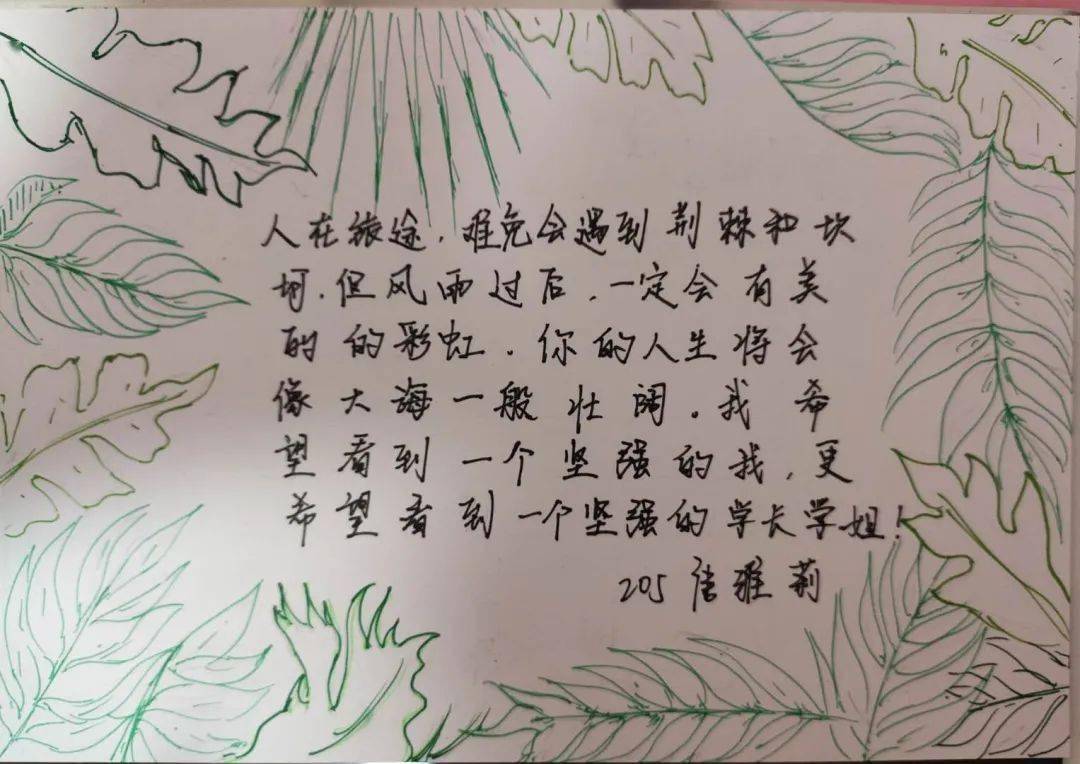 人在旅途，难免会遇到荆棘和坎
坷，但风雨过后，一定会有美
的的彩虹。你的人生将会
像大海一般壮阔。我希
望看到一个坚强的我，更
希望看到一个坚强的学长学姐！
205 唐雅莉